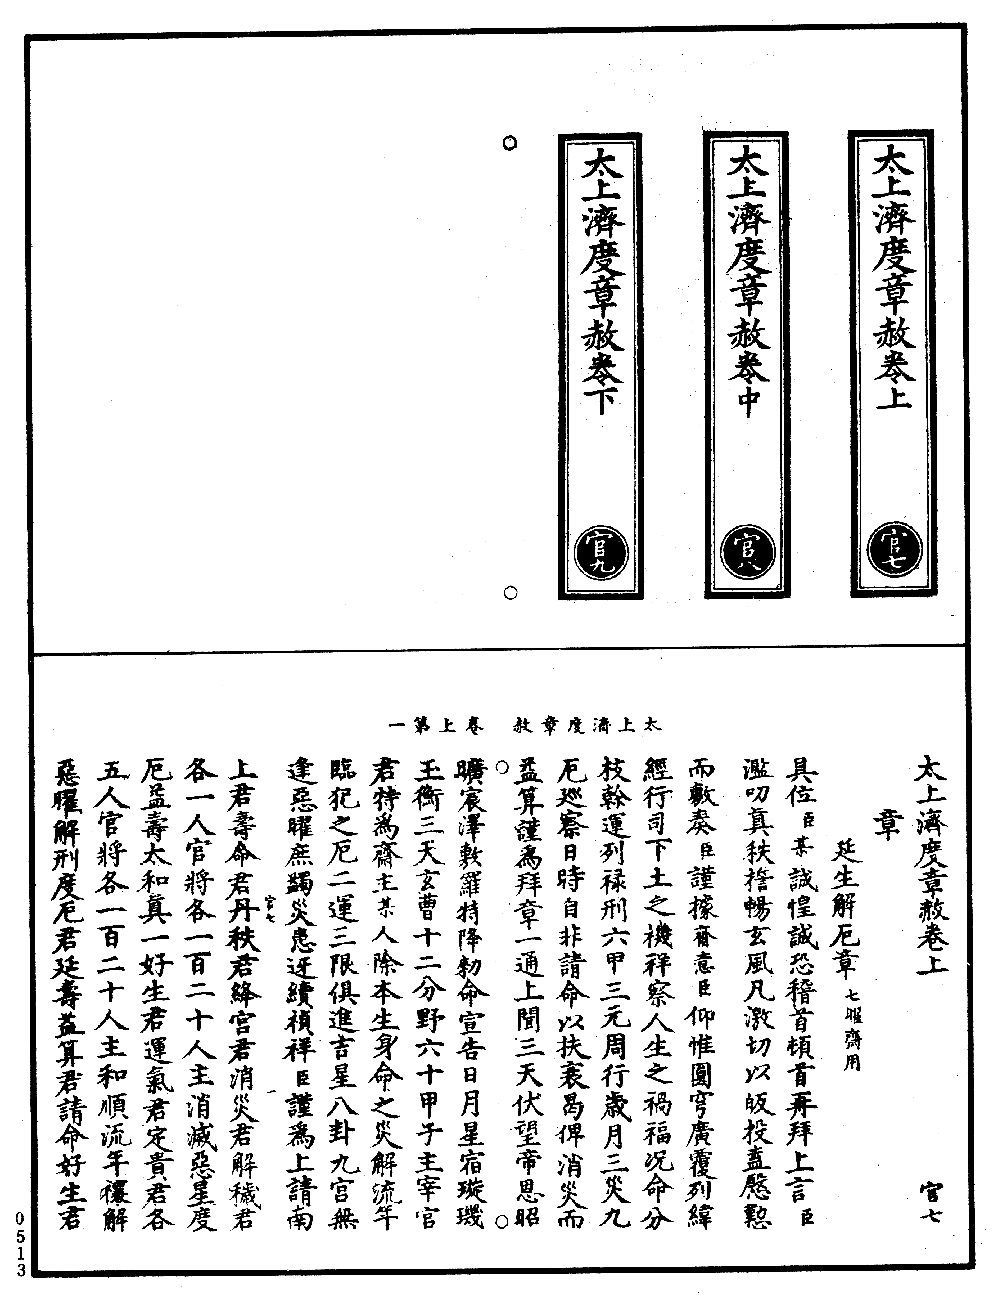 太上濟度章赦卷上
官七
太上濟度章赦卷中
官八
太上濟度章赦卷下
官九
太上濟度章赦 卷上第一
太上濟度章赦卷上 官七
章
延生解厄章 七曜齋用
具位臣某誠惶誠恐稽首頓首再拜上言臣
濫叨真秩襜暢玄風凡激切以皈投盍慇懃
而敷奏臣謹據齋意臣仰惟圜穹廣覆列緯
經行司下土之機祥察人生之禍福況命分
枝幹運列祿刑六甲三元周行歲月三災九
厄巡察日時自非請命以扶衰曷俾消災而
益算謹為拜章一通上聞三天伏望帝恩昭
曠宸澤敷羅特降勑命宣告日月星宿璇璣
玉衡三天玄曹十二分野六十甲子主宰官
君特為齋主某人除本生身命之災解流年
臨犯之厄二運三限俱進吉星八卦九宮無
逢惡曜庶蠲災患迓續禎祥臣謹為上請南
官七
一
上君壽命君丹秩君絳宮君消災君解穢君
各一人官將各一百二十人主消滅惡星度
厄益壽太和真一好生君運氣君定貴君各
五人官將各一百二十人主和順流年禳解
惡曜解刑度厄君延壽益算君請命好生君
0513